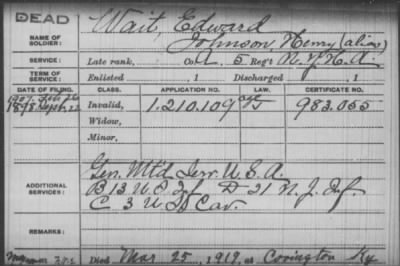 DEAD
NAME OF SOLDIER:
Wait, Edward
Johnson, Henry (alias)
SERVICE:
Late rank, Co. A 5 Reg't N.Y.H.A.
TERM OF SERVICE:
Enlisted , 1 Discharged , 1
DATE OF FILING. CLASS. APPLICATION NO. LAW. CERTIFICATE NO.
1907. Feb 26
1898 Sept. 22 Invalid, 1.210.109 983.055
Widow,
Minor,
ADDITIONAL SERVICES:
Gen. Mtd Serv. U.S.A.
B 13 U.S. Inf. D 21 N.J. Inf.
C 3 U.S. Cav.
REMARKS:
Died Mar. 25, 1919, at Covington Ky